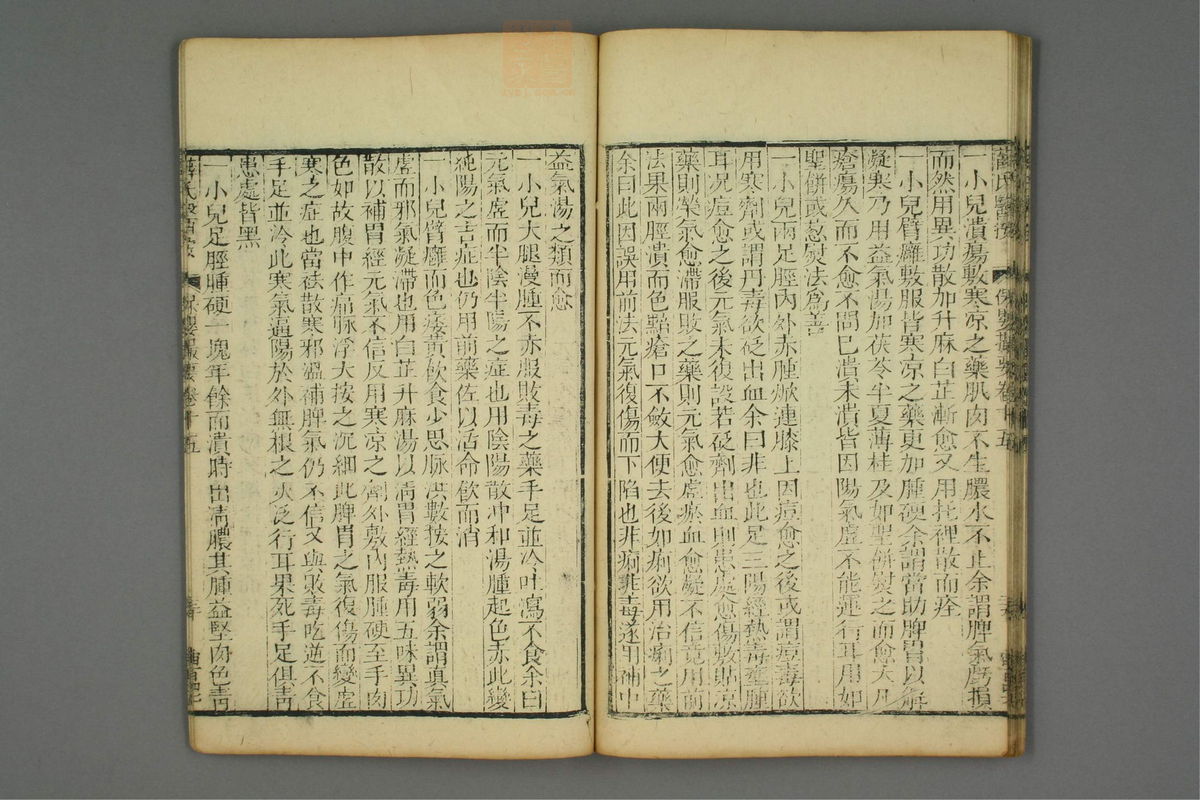 薛氏醫按 保嬰撮要卷十五
一小兒潰瘍敷寒凉之藥肌肉不生膿水不止余謂脾氣虛損
而然用異功散加升麻白芷漸愈又用托裡散而痊
一小兒臂癰敷服皆寒凉之藥更加腫硬余謂當助脾胃以解
凝寒乃用益氣湯加茯苓半夏薄桂及如聖餅熨之而愈大凡
瘡瘍久而不愈不問已潰未潰皆因陽氣虛不能運行耳用如
聖餅或葱熨法爲善
一小兒兩足脛內外赤腫焮連膝上因痘愈之後或謂痘毒欲
用寒劑或謂丹毒欲砭出血余曰非也此足三陽經熱毒壅腫
耳况痘愈之後元氣未復設若砭劑出血則患處愈傷敷貼凉
藥則榮氣愈滯服敗之藥則元氣愈虛瘀血愈凝不信竟用前
法果兩脛潰而色黯瘡口不斂大便去後如痢欲用治痢之藥
余曰此因誤用前法元氣復傷而下陷也非痢非毒遂用補中
益氣湯之類而愈
一小兒大腿漫腫不赤服敗毒之藥手足並冷吐瀉不食余曰
元氣虛而半陰半陽之症也用陰陽散冲和湯腫起色赤此變
純陽之吉症也仍用前藥佐以活命飲而消
一小兒臂癰而色痿黃飲食少思脉洪數按之軟弱余謂真氣
虛而邪氣凝滯也用白芷升麻湯以淸胃經熱毒用五味異功
散以補胃經元氣不信反用寒凉之劑外敷內服腫硬至手肉
色如故腹中作痛脉浮大按之沉細此脾胃之氣復傷而變虛
寒之症也當祛散寒邪溫補脾氣仍不信又與敗毒吃逆不食
手足並冷此寒氣逼陽於外無根之火泛行耳果死手足俱靑
患處皆黑
一小兒足脛腫硬一塊年餘而潰時出淸膿其腫益堅肉色靑
薛氏醫按 保嬰撮要卷十五